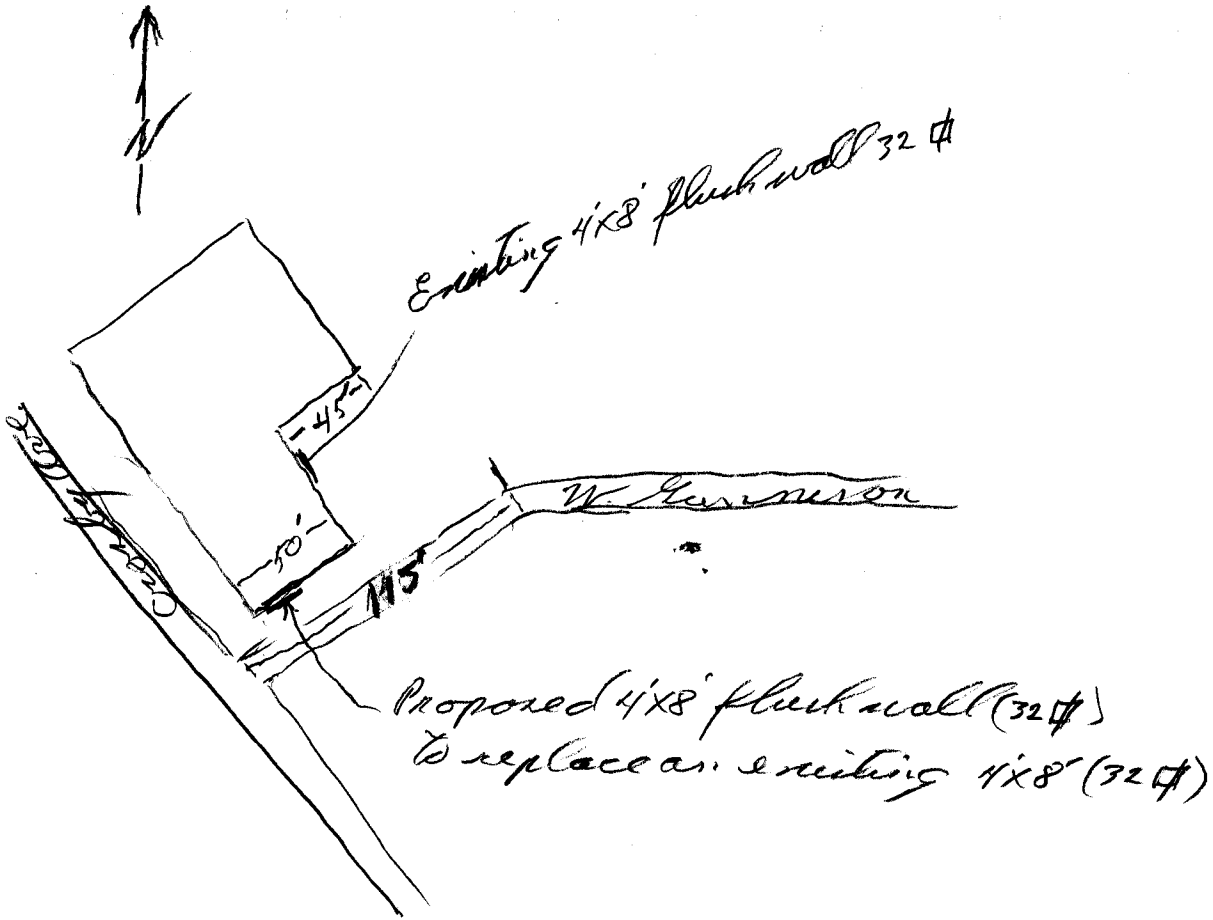 N
Existing 4'x8' flush wall 32 ⏍
-45'-
-50'-
115'
W. Gunnison
Proposed 4'x8' flush wall (32 ⏍)
to replace an existing 4'x8' (32 ⏍)